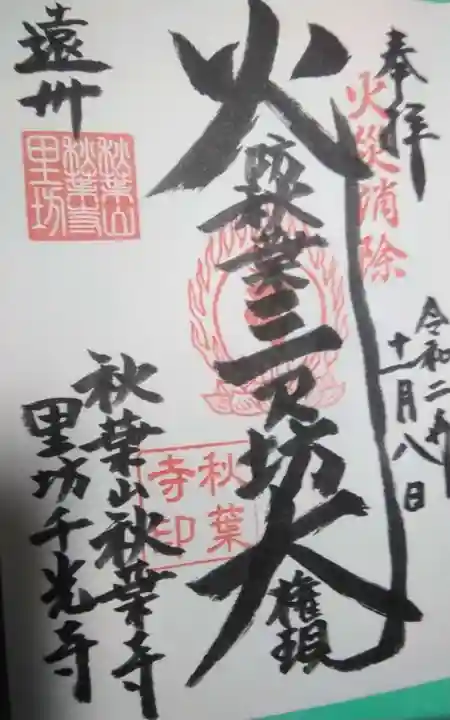 奉拝
火災消除
令和二年
十一月八日
火防秋葉三尺坊大権現
秋葉
寺印
遠州
秋葉山
秋葉寺
里坊
秋葉山秋葉寺
里坊千光寺